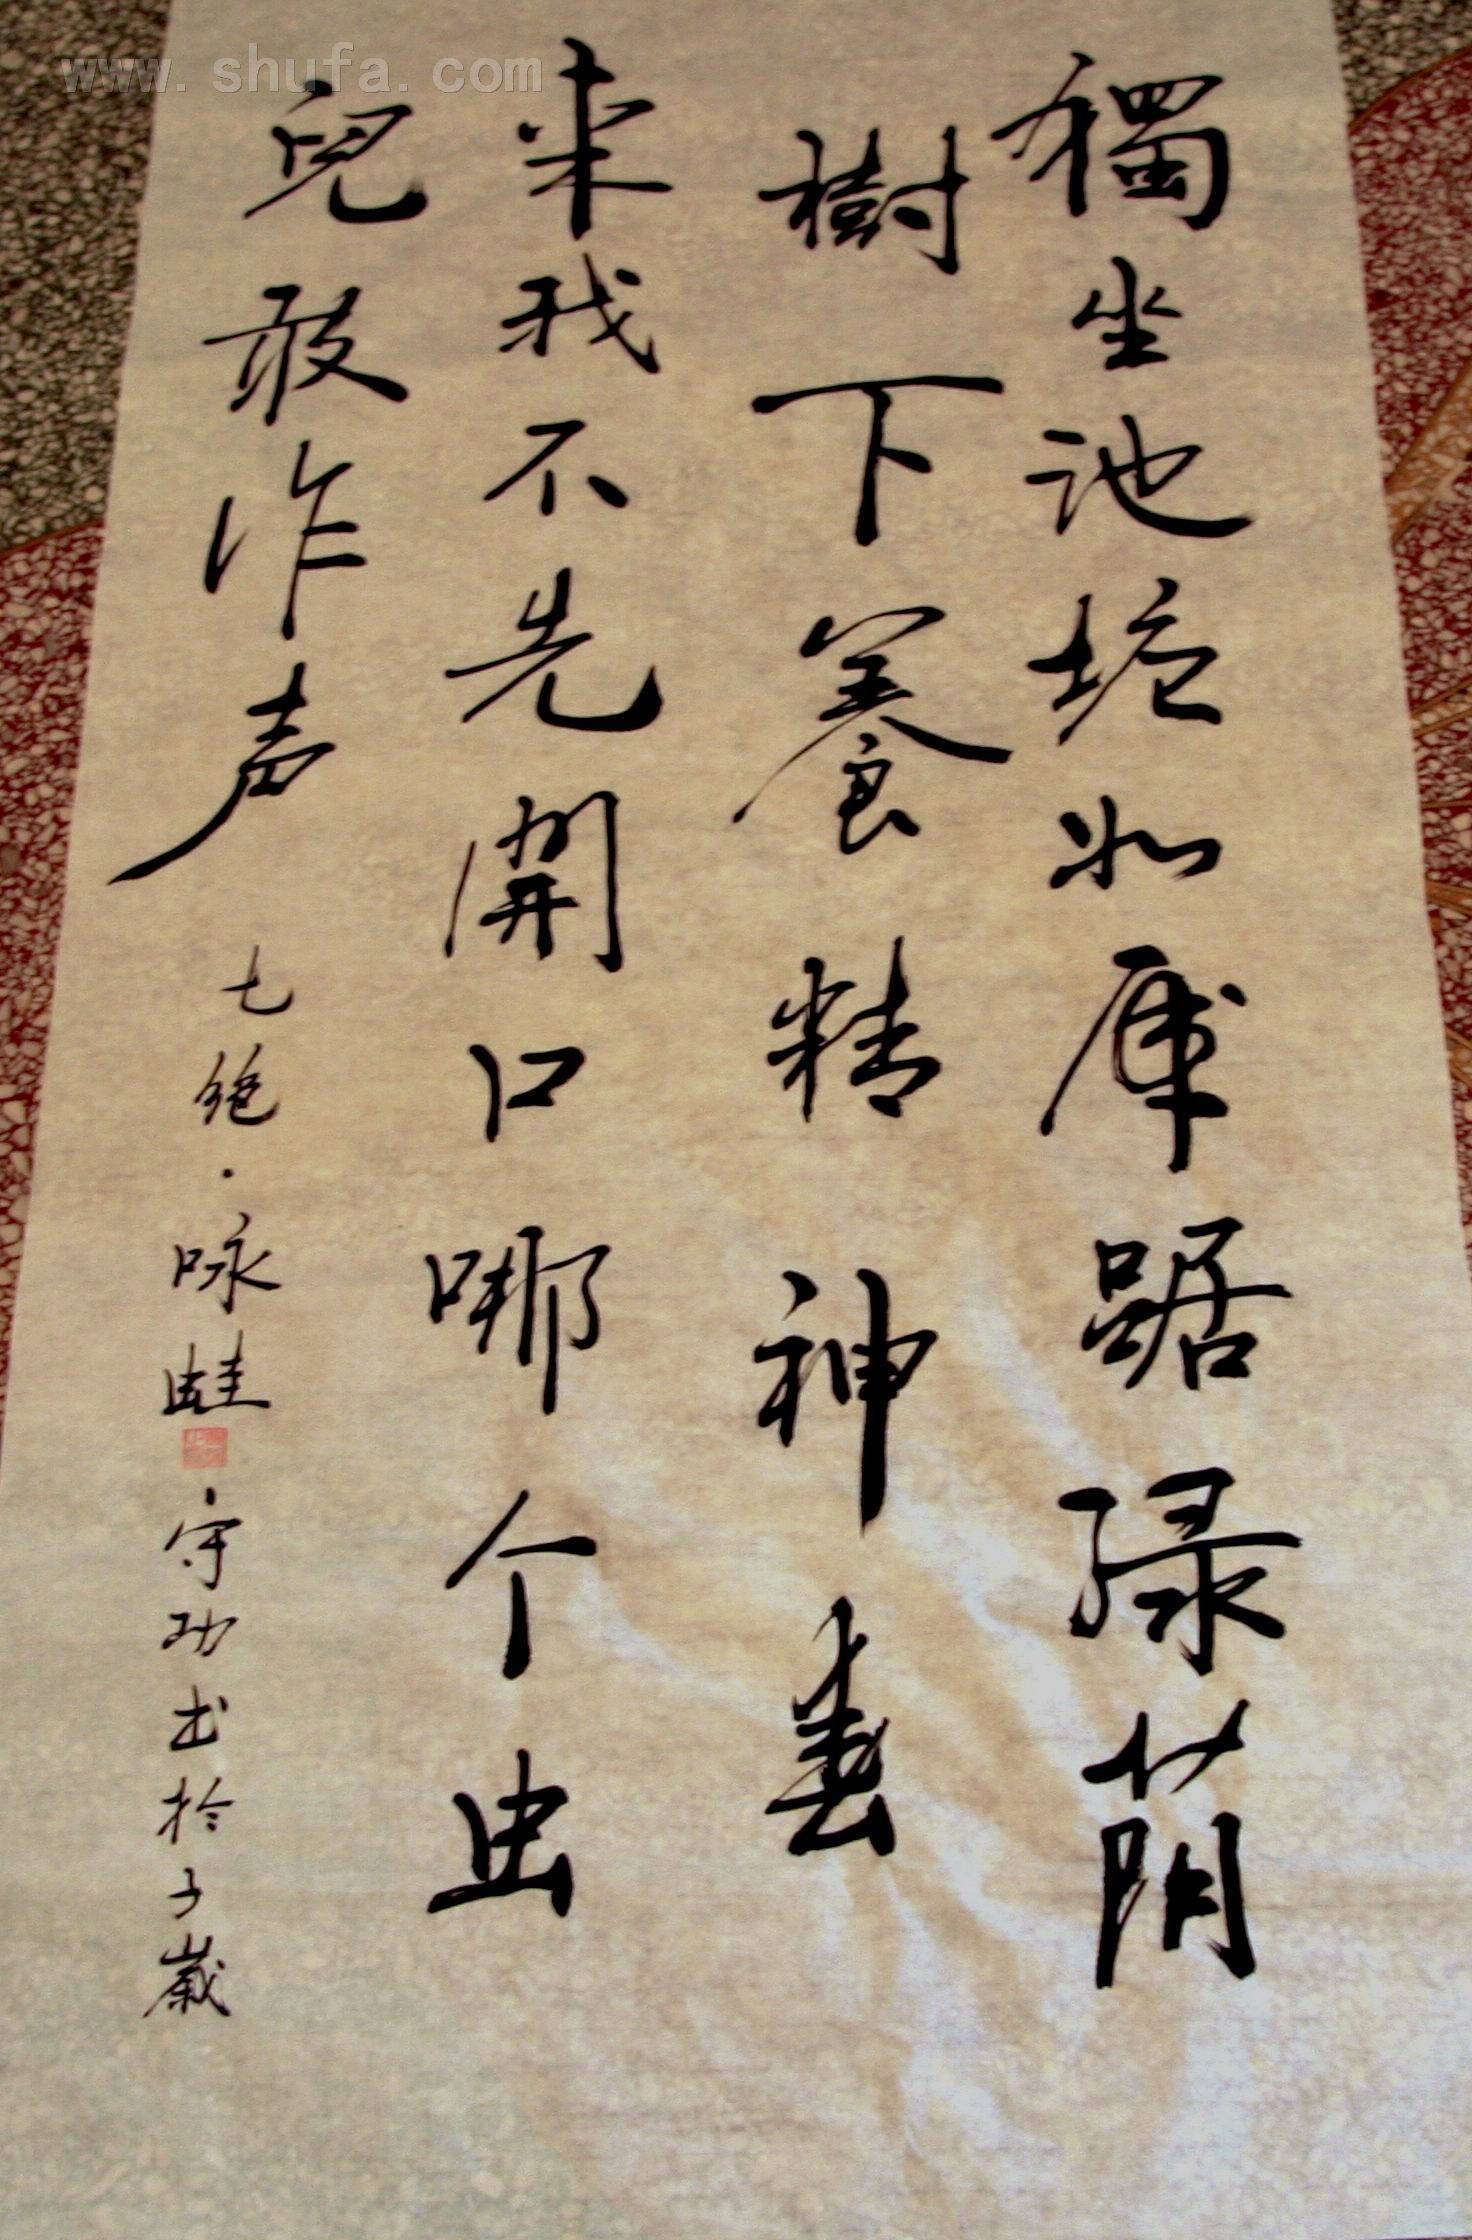 獨坐池垙如虎踞绿荫
樹下養精神春
来我不先開口哪个虫
兒敢作声
七絶·咏蛙
守功书於子歲
www.shufa.com